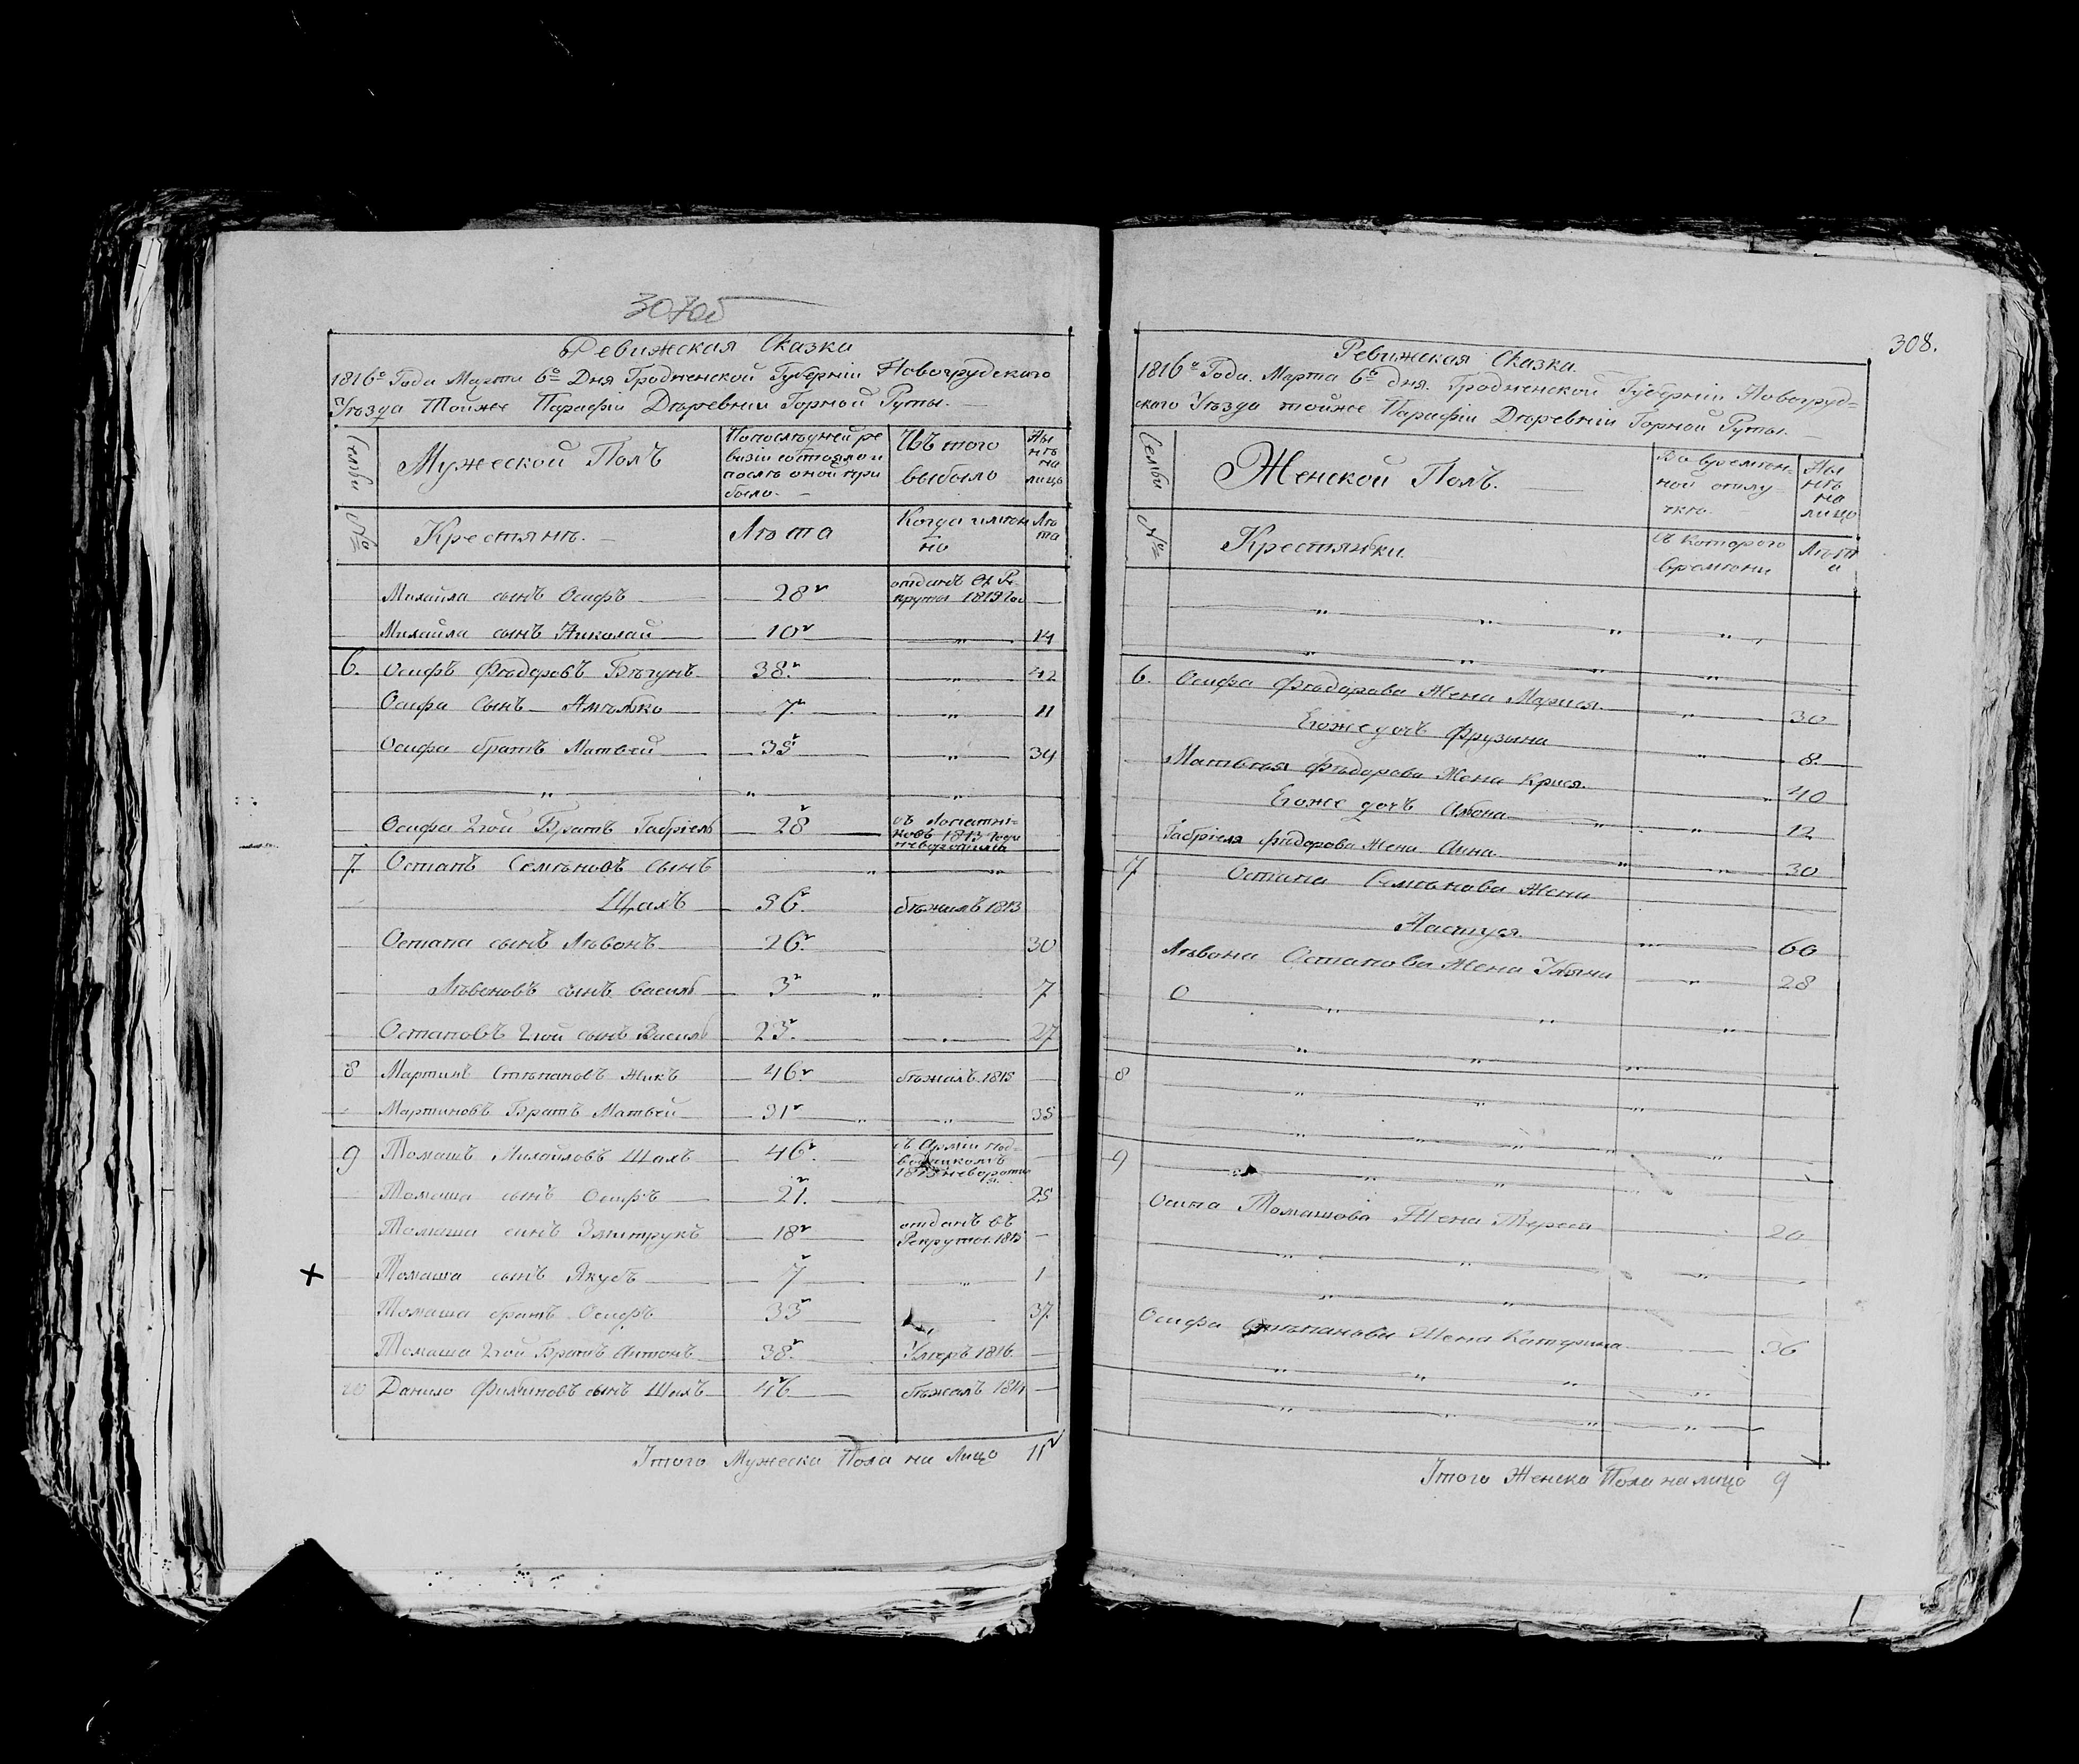 307об
Ревижская Сказка
1816го Года Марта 6го Дня Гродненской Губерніи Новогрудского
Уѣзда Тойже Парафіи Дѣревни Горной Руты.
Семьи
Мужеской Полъ
По последней ре
визіи состояло и
послѣ оной при
было.
Изъ того
выбыло
Ны
нѣ
на
лицо
№
Крестянѣ.
Лѣта
Когда имян
но
Лѣ
та
Михайла сынъ Осифъ 28
отданъ въ Ре
круты 1813 Го
Михайла сынъ Николай 10 " 14
6. Осифъ Фѣдоровъ Бѣгунъ 38. " 42
Осифа Сынъ 7 " 11
Осифа братъ Матвей 35 " 34
" " "
Осифа 2гой Братъ Габріель 28
1813 Года
7 Остапъ Семѣновъ сынъ " "
Шахъ 56. бѣжалъ 1813
Остапа сынъ Лѣвонъ 26 30
Лѣвоновъ сынъ Василь 3 " 7
Остаповъ 2гой сынъ Василь 23. " 27
8 Мартинъ Стѣпановъ Жикъ 46. бѣжалъ 1813
Мартиновъ Братъ Матвей 31 " " 35
9 Томашъ Михайловъ Шахъ 46.
съ Арміи под
водчикомъ
1813 неворотил
Томаша сынъ Осифъ 21. 25
Томаша синъ Змитрукъ 18
отданъ въ
Рекруты 1813
Томаша сынъ Якубъ 7 " 1
Томаша братъ Осифъ 33 37
Томаша 2гой Братъ Антонъ 38. Умеръ 1816
10 Данило сынъ Шахъ 46 бѣжалъ 1811
Итого Мужеска Пола на Лицо 11
308.
Ревижская Сказка.
1816го Года. Марта 6го дня. Гродненской Губерніи Новогруд=
ского Уѣзда тойже Парафіи Дѣревніи Горной Руты.
Семьи
Женской Полъ.
Во времян=
ной отлу
чкѣ.
Ны
нѣ
на
лицо
№
Крестянки.
Съ которого
времѣни
Лѣт
а
" " "
" " "
6. Осифа Фѣдорова Жена Марися " 30
Егоже дочъ Фрузына " 8.
Матвея Фѣдорова Жена Крися. " 40
Егоже дочъ " " 12
Габріеля Фѣдорова Жена Анна " " 30
7 Остапа Семѣнова Жена
Настуся. " 60
Лѣвона Остапова Жена " 28
0 " " "
" " "
8 " " "
" " "
9 " " "
Осипа Томашова Жена Тереса 20
" " "
" "
Осифа Стѣпанова Жена Катерина 36
" " " "
" " "
Итого Женска Пола налицо 9